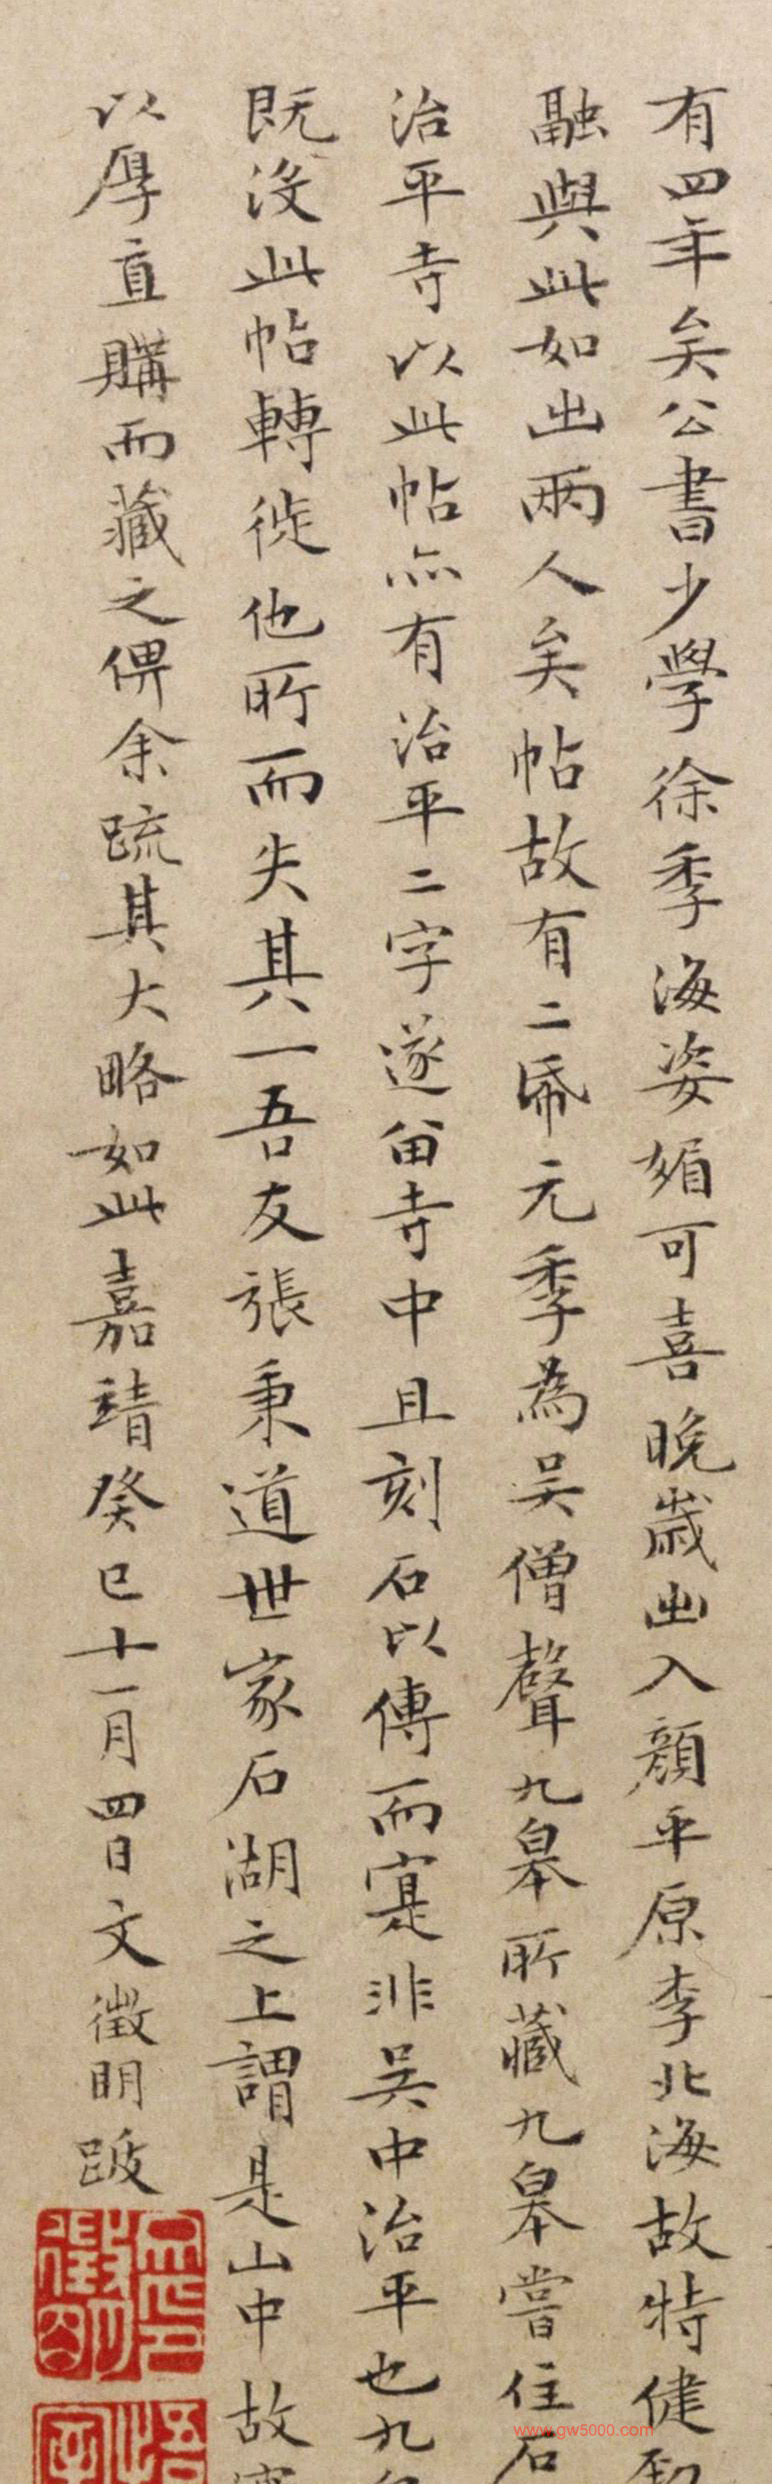 有四年矣公書少學徐季海姿媚可喜晚歲出入顏平原李北海故特健
融與此如出兩人矣帖故有二帋元季為吳僧聲九皋所藏九皋嘗住石
治平寺以此帖亦有治平二字遂留寺中且刻石以傳而寔非吳中治平也九
既沒此帖轉徙他所而失其一吾友張秉道世家石湖之上謂是山中故
以厚直購而藏之俾余疏其大略如此嘉靖癸巳十一月四日文徵明跋
www.gw5000.com